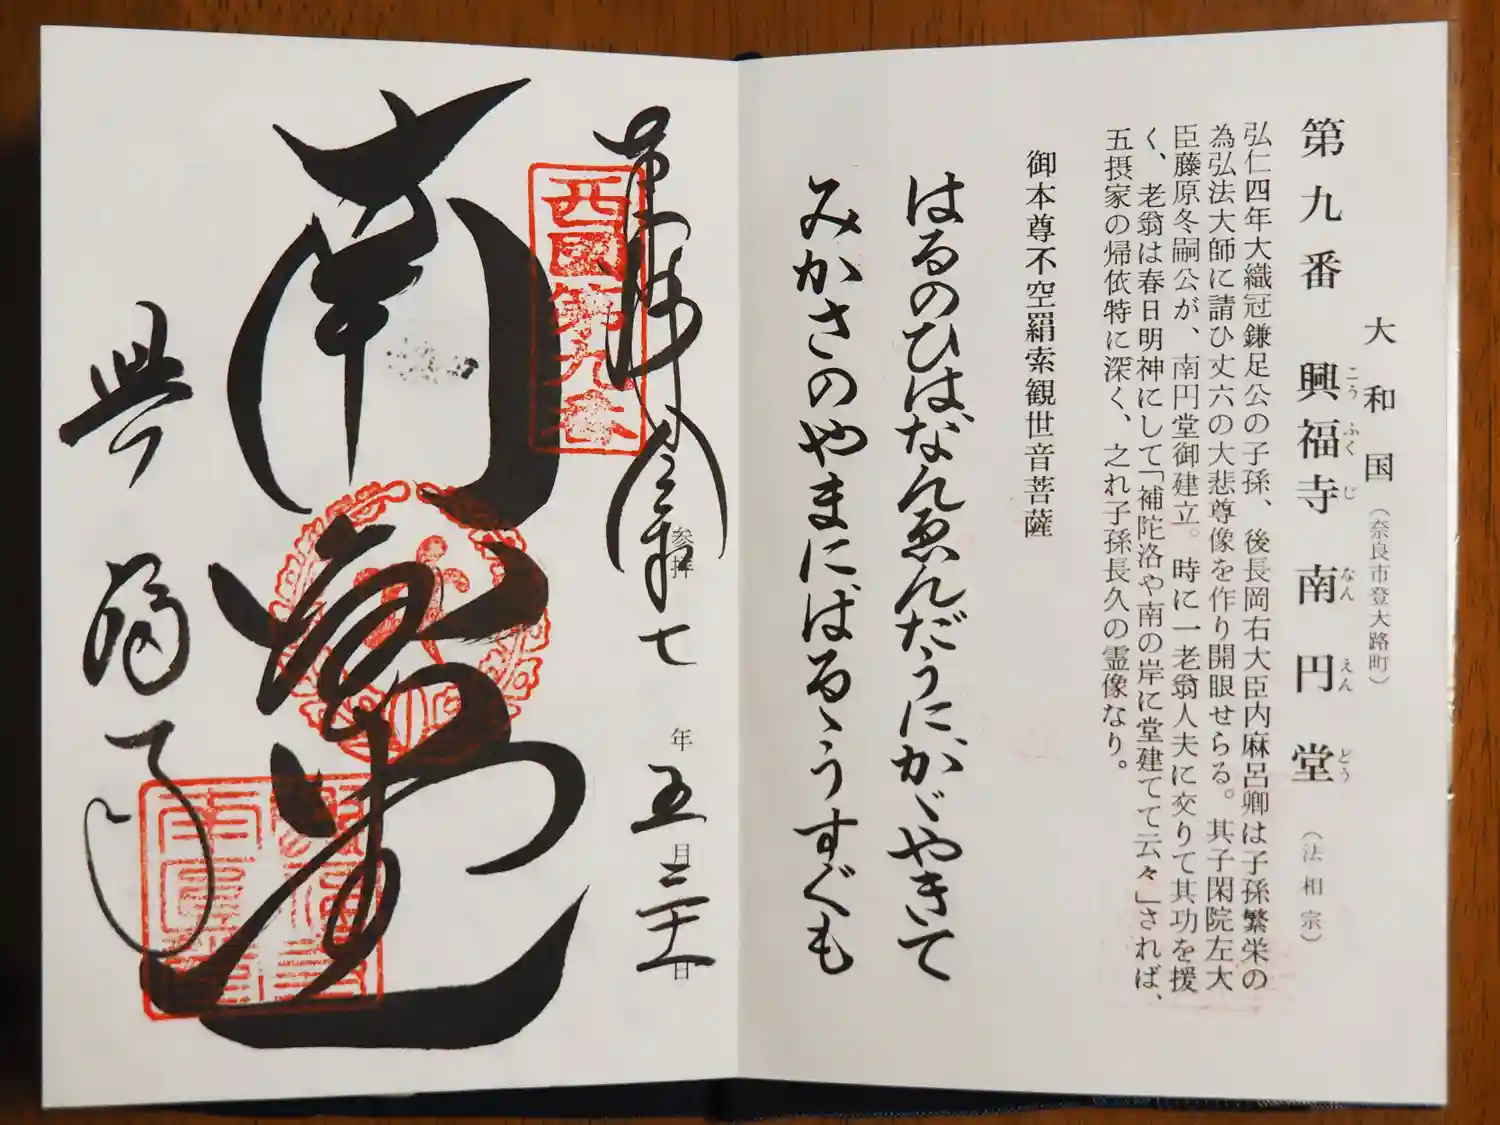 大和国（奈良市登大路町）
第九番 興福寺 南円堂（法相宗）
こうふくじ なんえんどう
弘仁四年大織冠鎌足公の子孫、後長岡右大臣内麻呂卿は子孫繁栄の
為弘法大師に請ひ丈六の大悲尊像を作り開眼せらる。其子閑院左大
臣藤原冬嗣公が、南円堂御建立。時に一老翁人夫に交りて其功を援
く、老翁は春日明神にして「補陀洛や南の岸に堂建てて云々」されば、
五摂家の帰依特に深く、之れ子孫長久の霊像なり。
御本尊不空羂索観世音菩薩
はるのひはなんゑんだうにかゞやきて
みかさのやまにはるゝうすぐも
参拝
七年五月三十一日
西國第九番
南円堂
興福寺